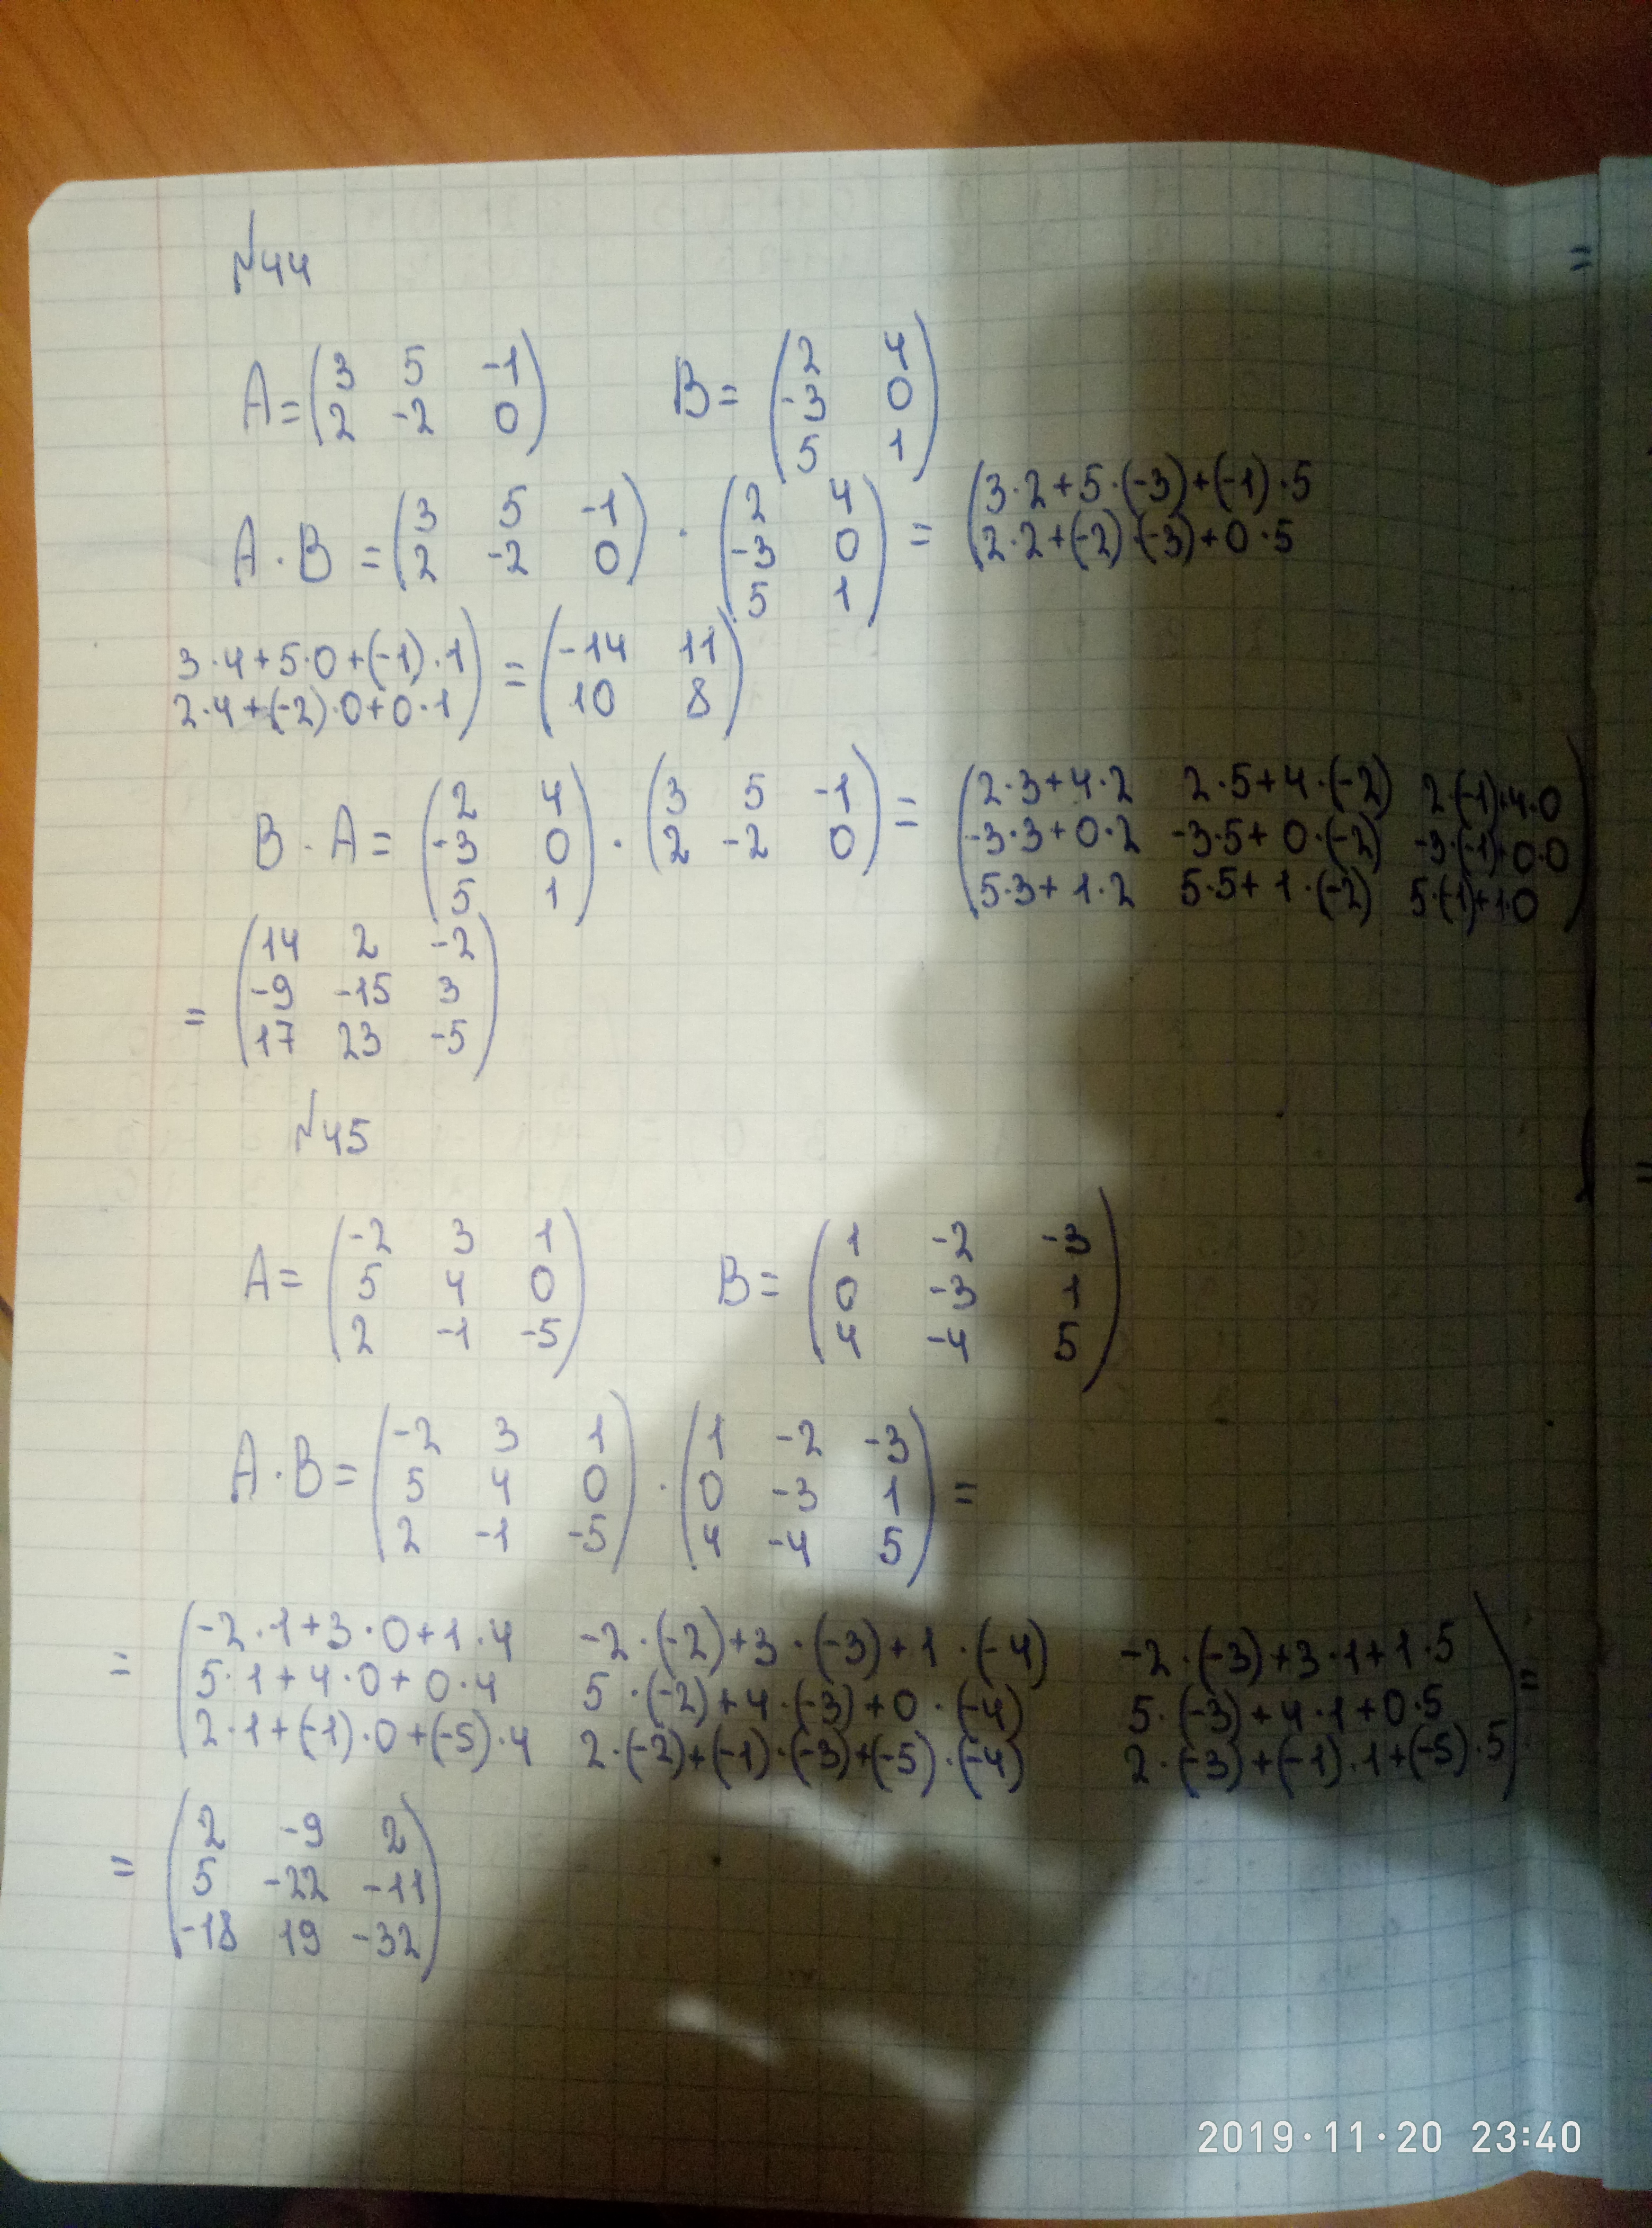 №44
A = (3 5 -1
2 -2 0) B = (2 4
-3 0
5 1)
A · B = (3 5 -1
2 -2 0) · (2 4
-3 0
5 1) = (3·2+5·(-3)+(-1)·5
2·2+(-2)·(-3)+0·5
3·4+5·0+(-1)·1
2·4+(-2)·0+0·1) = (-14 11
10 8)
B · A = (2 4
-3 0
5 1) · (3 5 -1
2 -2 0) = (2·3+4·2 2·5+4·(-2) 2·(-1)+4·0
-3·3+0·2 -3·5+0·(-2) -3·(-1)+0·0
5·3+1·2 5·5+1·(-2) 5·(-1)+1·0)
= (14 2 -2
-9 -15 3
17 23 -5)
№45
A = (-2 3 1
5 4 0
2 -1 -5) B = (1 -2 -3
0 -3 1
4 -4 5)
A · B = (-2 3 1
5 4 0
2 -1 -5) · (1 -2 -3
0 -3 1
4 -4 5) =
= (-2·1+3·0+1·4 -2·(-2)+3·(-3)+1·(-4) -2·(-3)+3·1+1·5
5·1+4·0+0·4 5·(-2)+4·(-3)+0·(-4) 5·(-3)+4·1+0·5
2·1+(-1)·0+(-5)·4 2·(-2)+(-1)·(-3)+(-5)·(-4) 2·(-3)+(-1)·1+(-5)·5) =
= (2 -9 2
5 -22 -11
-18 19 -32)
2019·11·20 23:40